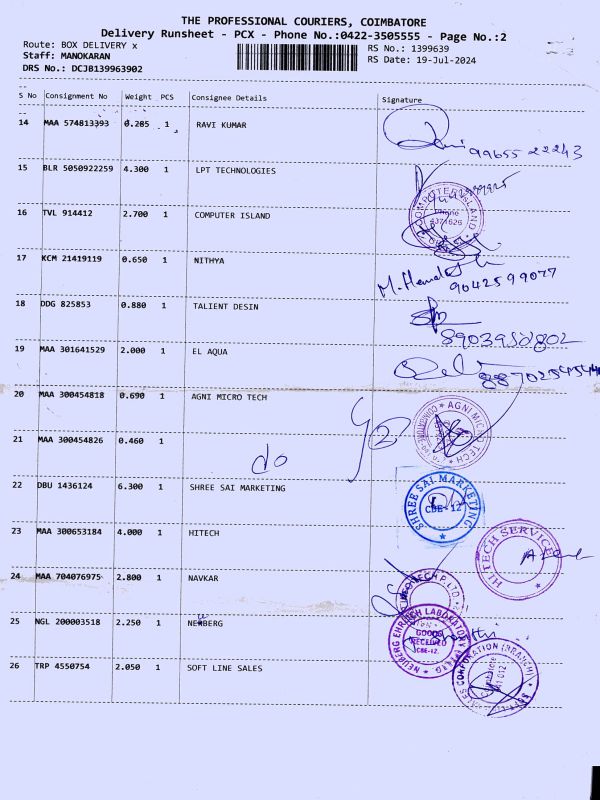 THE PROFESSIONAL COURIERS, COIMBATORE
Delivery Runsheet - PCX - Phone No.:0422-3505555 - Page No.:2
Route: BOX DELIVERY x RS No.: 1399639
Staff: MANOKARAN RS Date: 19-Jul-2024
DRS No.: DCJB139963902
S No Consignment No Weight PCS Consignee Details Signature
14 MAA 574813393 0.285 1 RAVI KUMAR
99655 22243
15 BLR 5050922259 4.300 1 LPT TECHNOLOGIES
16 TVL 914412 2.700 1 COMPUTER ISLAND
COMPUTER ISLAND
Phone
4371626
17 KCM 21419119 0.650 1 NITHYA
9042599077
18 DDG 825853 0.880 1 TALIENT DESIN
19 MAA 301641529 2.000 1 EL AQUA
20 MAA 300454818 0.690 1 AGNI MICRO TECH
AGNI MICRO TECH
21 MAA 300454826 0.460 1
do
22 DBU 1436124 6.300 1 SHREE SAI MARKETING
SHREE SAI MARKETING
CBE-12
23 MAA 300653184 4.000 1 HITECH
HITECH SERVICE
24 MAA 704076975 2.800 1 NAVKAR
25 NGL 200003518 2.250 1 NEUBERG
NEUBERG EHRLICH LABORATORY
GOODS
RECEIVED
CBE-12.
26 TRP 4550754 2.050 1 SOFT LINE SALES
SALES CORPORATION (BRANCH)
Coimbatore
641 012